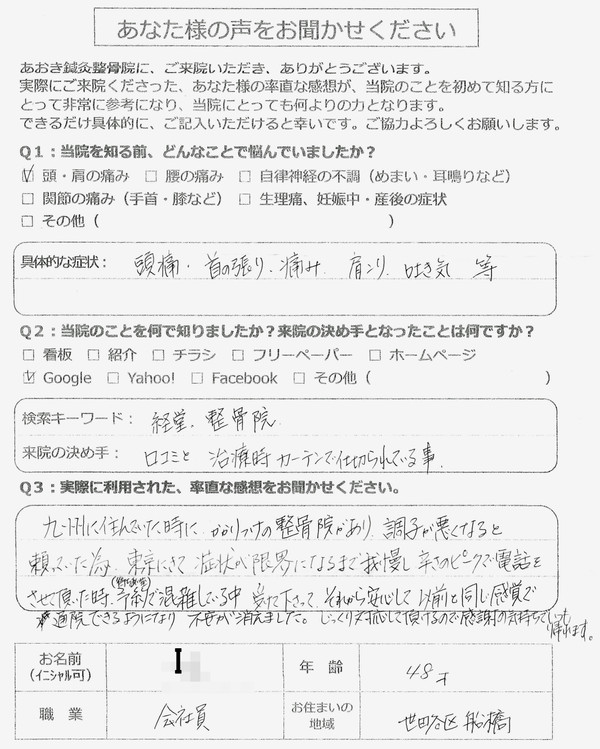 あなた様の声をお聞かせください
あおき鍼灸整骨院に、ご来院いただき、ありがとうございます。
実際にご来院くださった、あなた様の率直な感想が、当院のことを初めて知る方に
とって非常に参考になり、当院にとっても何よりの力となります。
できるだけ具体的に、ご記入いただけると幸いです。ご協力よろしくお願いします。
Q1：当院を知る前、どんなことで悩んでいましたか？
☑ 頭・肩の痛み □ 腰の痛み □ 自律神経の不調（めまい・耳鳴りなど）
□ 関節の痛み（手首・膝など） □ 生理痛、妊娠中・産後の症状
□ その他（ ）
具体的な症状： 頭痛・首の張り、痛み、肩こり、吐き気 等
Q2：当院のことを何で知りましたか？来院の決め手となったことは何ですか？
□ 看板 □ 紹介 □ チラシ □ フリーペーパー □ ホームページ
☑ Google □ Yahoo! □ Facebook □ その他（ ）
検索キーワード： 経堂、整骨院
来院の決め手： 口コミと 治療時カーテンで仕切られている事
Q3：実際に利用された、率直な感想をお聞かせください。
九州に住んでいた時に かかりつけの整骨院があり 調子が悪くなると
頼っていた為 東京にきて 症状が限界になるまで我慢し 辛さのピークで電話を
させて頂いた時、予約で混雑している中 受けて下さって、それから安心して 以前と同じ感覚で
通院できるようになり 不安が消えました。じっくり対応して頂けるので感謝の気持ちでいつも
帰れます。
お名前
（イニシャル可） I 年 齢 48才
職 業 会社員 お住まいの
地域 世田谷区 船橋